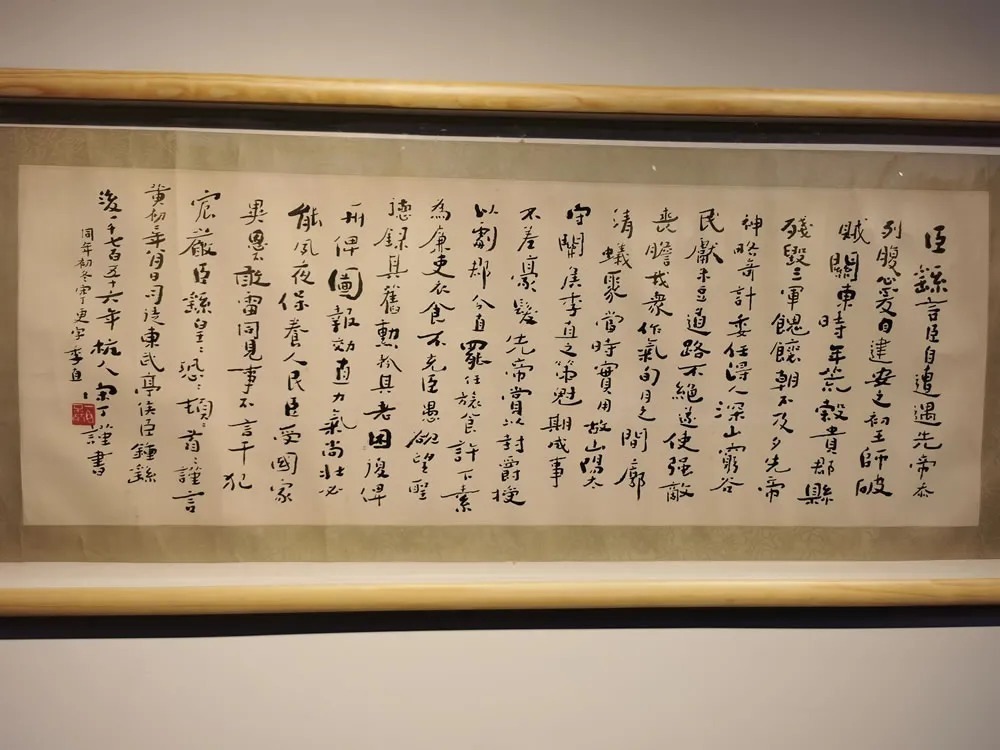 臣繇言臣自遭遇先帝忝
列腹心爰自建安之初王師破
賊關東時年荒穀貴郡縣
殘毀三軍餽饟朝不及夕先帝
神略奇計委任得人深山窮谷
民獻米豆道路不絕遂使強敵
喪膽我衆作氣旬月之間廓
清蟻聚當時實用故山陽太
守關侯季直之策期成事
不差豪髮先帝賞以封爵授
以劇郡今直罷任旅食許下素
為廉吏衣食不充臣愚欲望聖
德錄其舊勳矜其老困復俾
州俾圖報效直力氣尚壯必
能夙夜保養人民臣受國家
異恩不敢雷同見事不言干犯
宸嚴臣繇皇〻恐〻頓〻首〻謹言
黃初二年八月日司徒東武亭侯臣鍾繇
後千七百五十六年杭人丁謹書
同年初冬更字季直